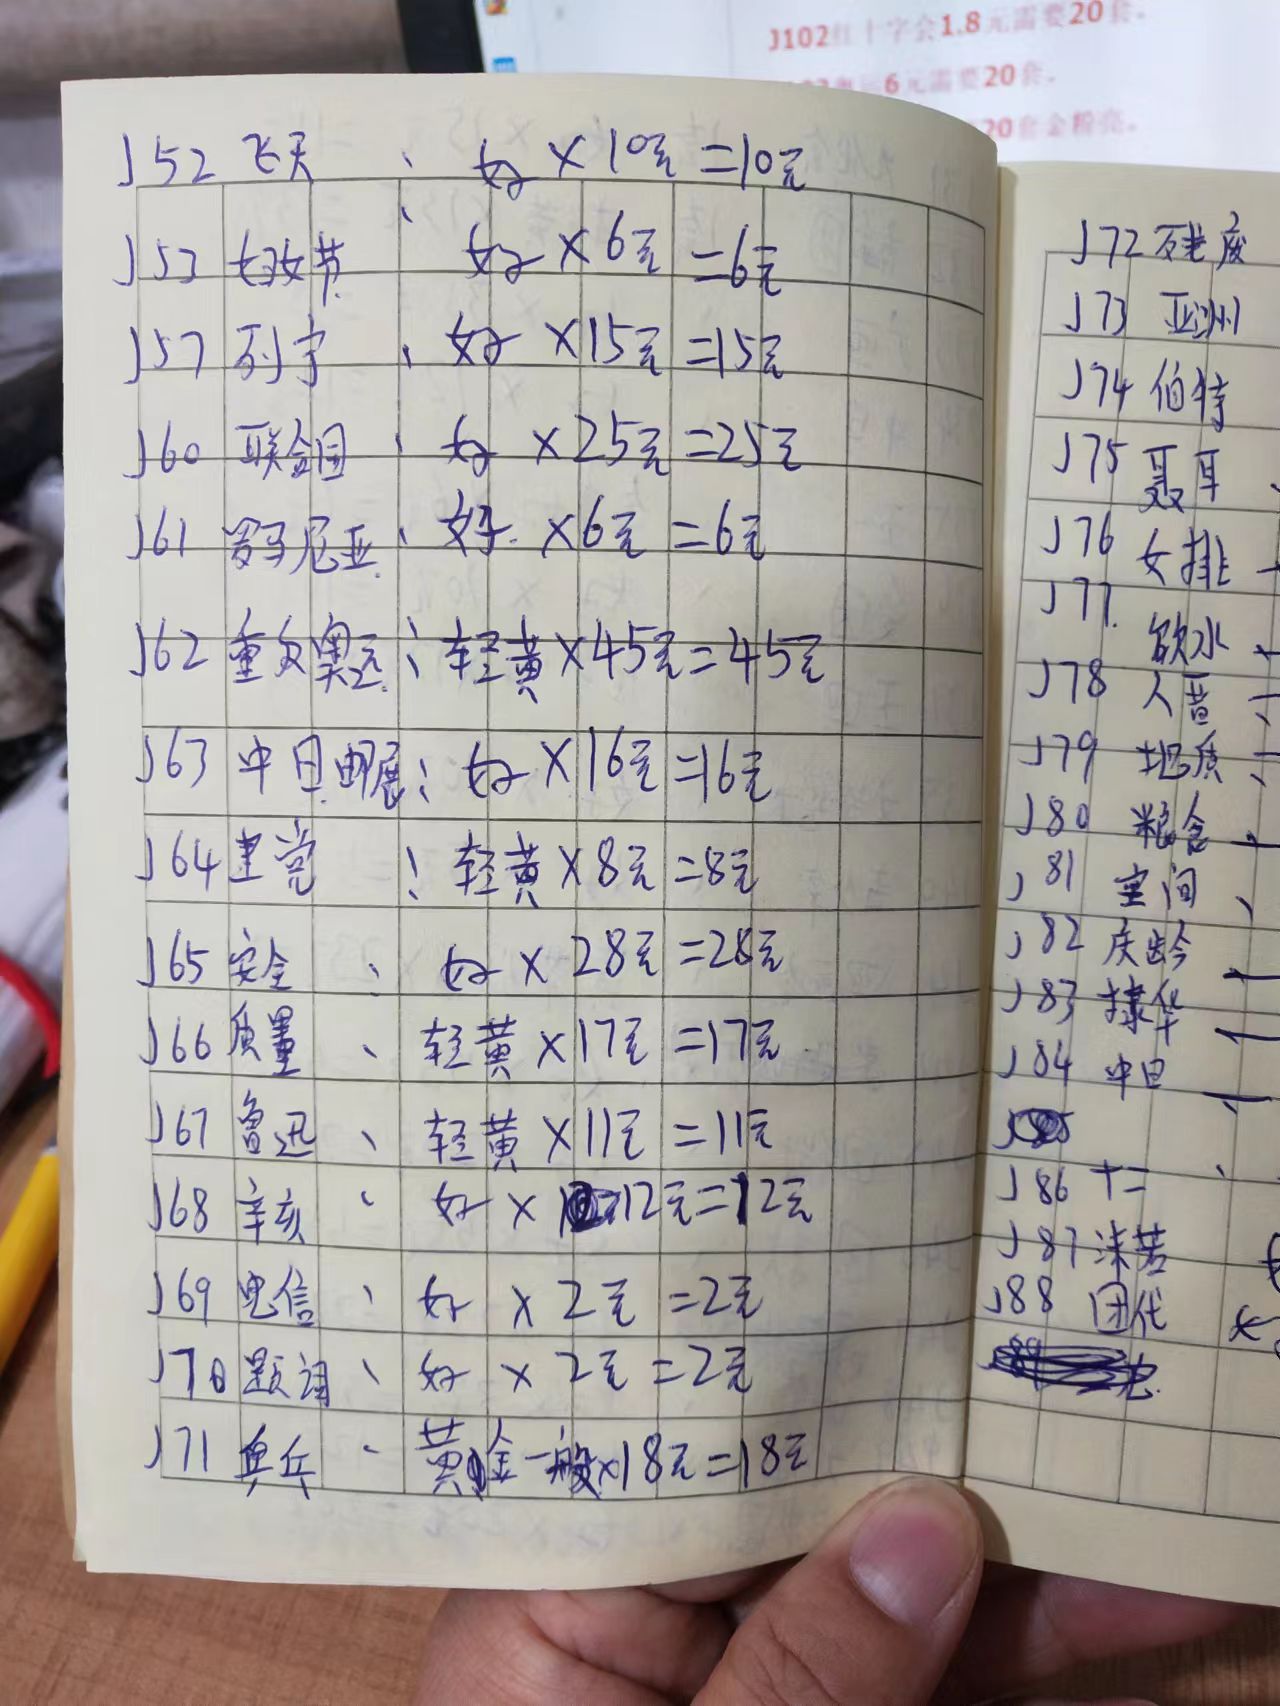 J102红十字会1.8元需要20套.
6元需要20套.
20套金粉亮.
J52 飞天 、 好×10元=10元
J53 妇女节 好×6元=6元
J57 列宁 、 好×15元=15元
J60 联合国 、 好×25元=25元
J61 罗马尼亚、 好.×6元=6元
J62 重返奥运: 轻黄×45元=45元
J63 中日邮展: 好×16元=16元
J64 建党 : 轻黄×8元=8元
J65 安全 、 好×28元=28元
J66 质量 、 轻黄×17元=17元
J67 鲁迅 、 轻黄×11元=11元
J68 辛亥 、 好×12元=12元
J69 电信 、 好×2元=2元
J70 题词 、 好×2元=2元
J71 兵乓 、 黄金一般×18元=18元
J72 残废
J73 亚洲
J74 伯特
J75 聂耳
J76 女排
J77. 饮水
J78 人普
J79 地质
J80 粮食
J81 空间
J82 庆龄
J83 棣华
J84 中日
J86 十二
J87 沫若
J88 团代